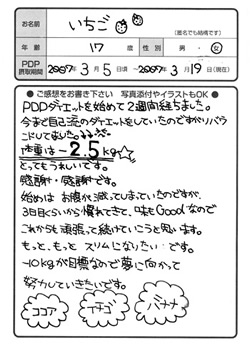 お名前 いちご
(匿名でも結構です)
年齢 17 歳 性別 男・女
PDP摂取期間 2007年3月5日頃〜2007年3月19日(現在)
●ご感想をお書き下さい 写真添付やイラストもOK●
PDPダイエットを始めて2週間経ちました。
今まで自己流のダイエットをしていたのですがリバウ
ンドしてました。
体重は-2.5kg☆
とってもうれしいです。
感謝・感謝です。
始めは お腹が減ってしまっていたのですが、
3日目くらいから慣れてきて、味もGoodなので
これからも頑張って続けていこうと思います。
もっと、もっと スリムになりたいです。
-10kgが目標なので夢に向かって
努力していきたいです。
ココア イチゴ バナナ